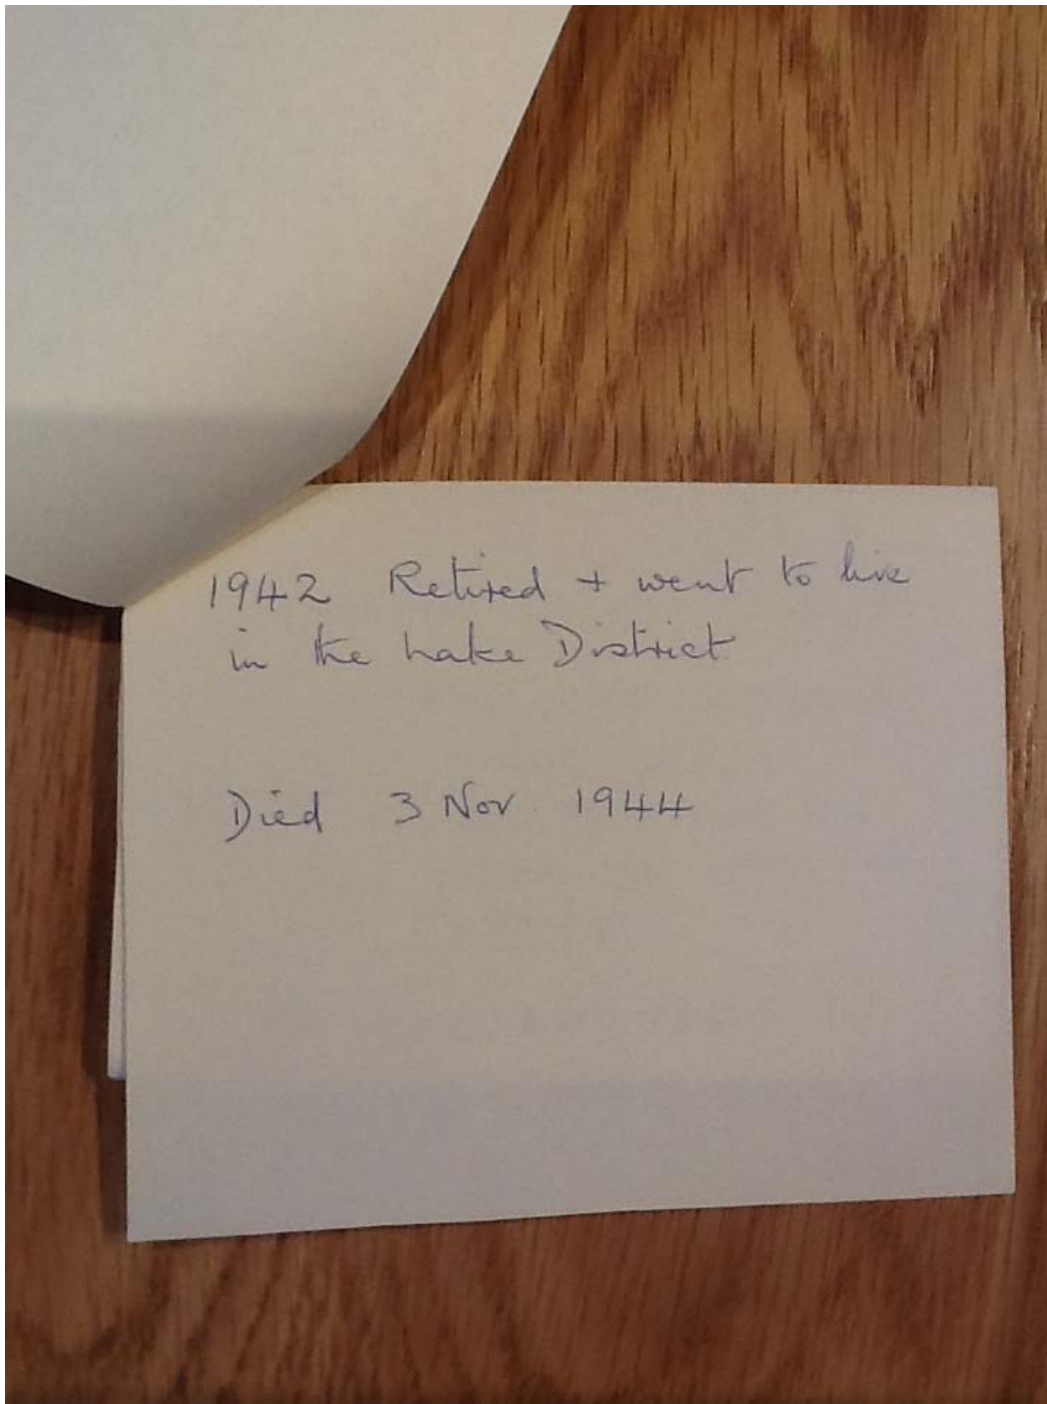 1942 Retired + went to live
in the Lake District.
Died 3 Nov 1944